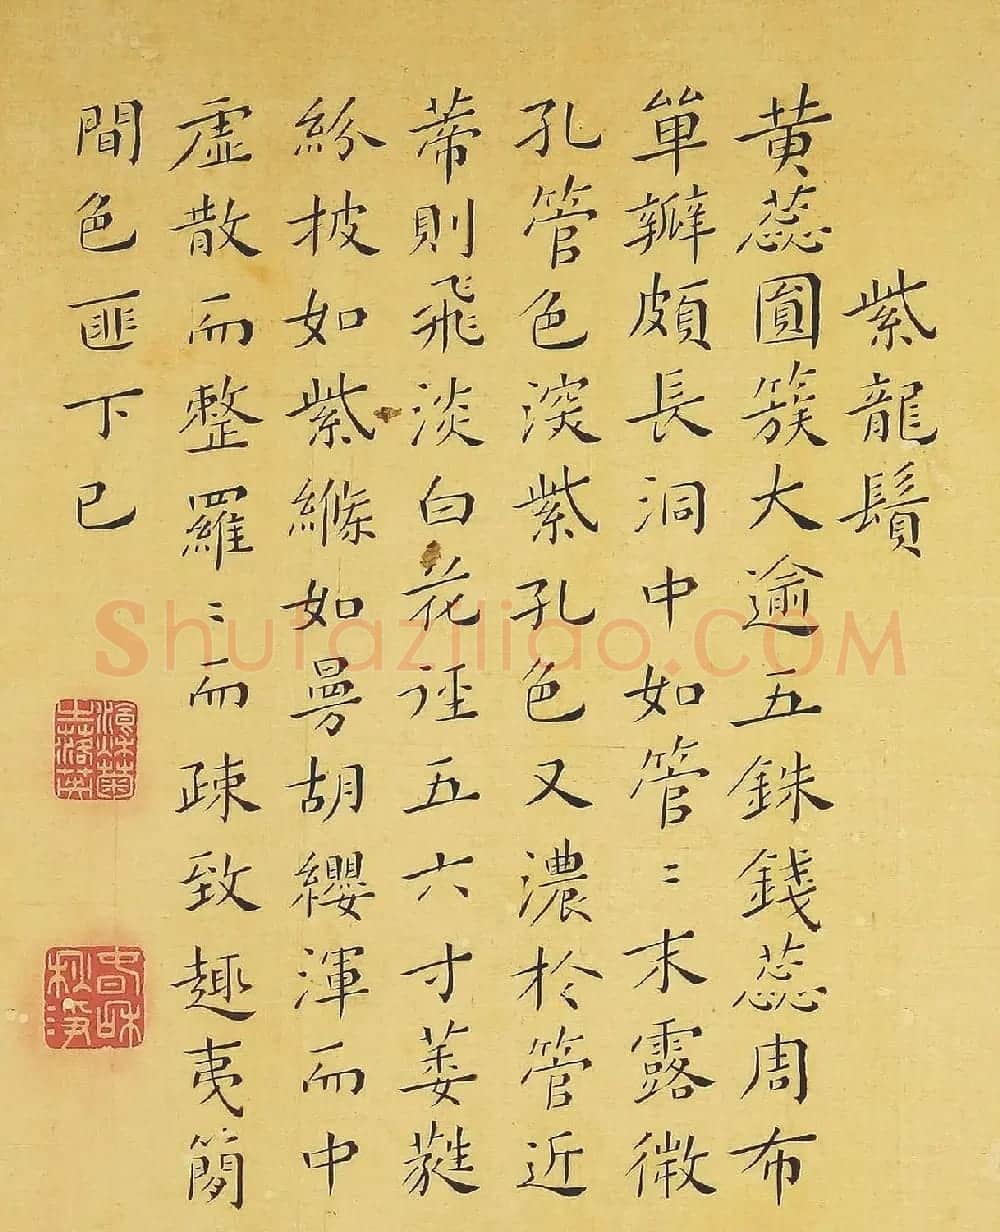 紫龍鬚
黄蕊圓簇大逾五銖錢蕊周布
單瓣頗長洞中如管〻末露微
孔管色深紫孔色又濃於管近
蒂則飛淡白花徑五六寸萎蕤
紛披如紫縧如曼胡纓渾而中
虛散而整羅〻而疎致趣夷簡
間色匪下已
Shufaziliao.COM